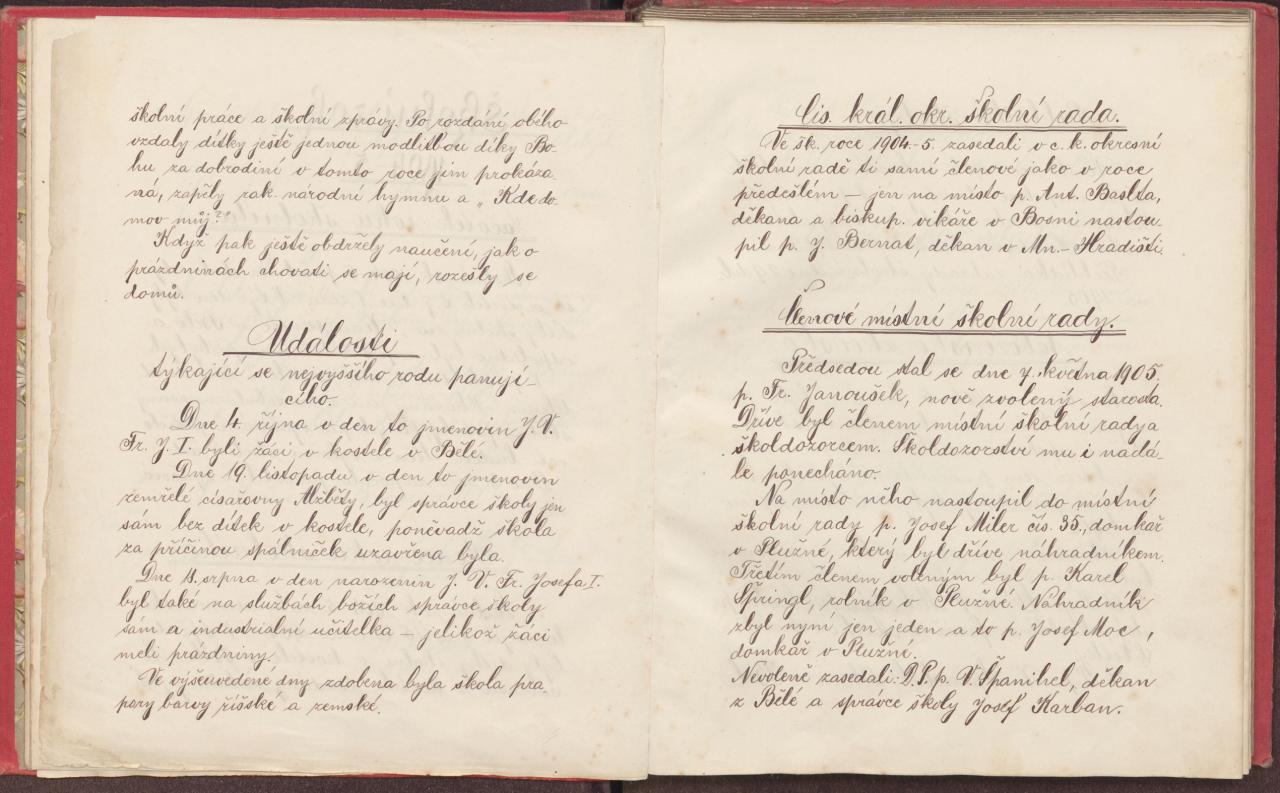 školní práce a školní zprávy. Po rozdání obého
vzdaly dítky ještě jednou modlitbou díky Bo-
hu za dobrodiní v tomto roce jim prokáza-
ná, zapěly rak. národní hymnu a „Kde do-
mov můj?"
Když pak ještě obdržely naučení, jak o
prázdninách chovati se mají, rozešly se
domů.
Události
týkající se nejvyššího rodu panují-
cího.
Dne 4. října v den to jmenovin J. V.
Fr. J. I. byli žáci v kostele v Bělé.
Dne 19. listopadu v den to jmenovin
zemřelé císařovny Alžběty, byl správce školy jen
sám bez dítek v kostele, poněvadž škola
za příčinou spálniček uzavřena byla.
Dne 18. srpna v den narozenin J. V. Fr. Josefa I.
byl také na službách božích správce školy
sám a industrialní učitelka – jelikož žáci
měli prázdniny.
Ve výšeuvedené dny zdobena byla škola pra-
pory barvy říšské a zemské.
Cís. král. okr. školní rada.
Ve šk. roce 1904-5. zasedali v c. k. okresní
školní radě ti samí členové jako v roce
předešlém – jen na místo p. Ant. Baslta,
děkana a biskup. vikáře v Bosni nastou-
pil p. J. Bernat, děkan v Mn.- Hradišti.
Členové místní školní rady.
Předsedou stal se dne 7. května 1905.
p. Fr. Janoušek, nově zvolený starosta.
Dříve byl členem místní školní rady a
školdozorcem. Školdozorství mu i nadá-
le ponecháno.
Na místo něho nastoupil do místní
školní rady p. Josef Miler čís. 35., domkář
v Plužné, který byl dříve náhradníkem.
Třetím členem voleným byl p. Karel
Špringl, rolník v Plužné. Náhradník
zbyl nyní jen jeden a to p. Josef Moc,
domkář v Plužné.
Nevoleně zasedali: D. P. p. V. Španihel, děkan
z Bělé a správce školy Josef Karban.